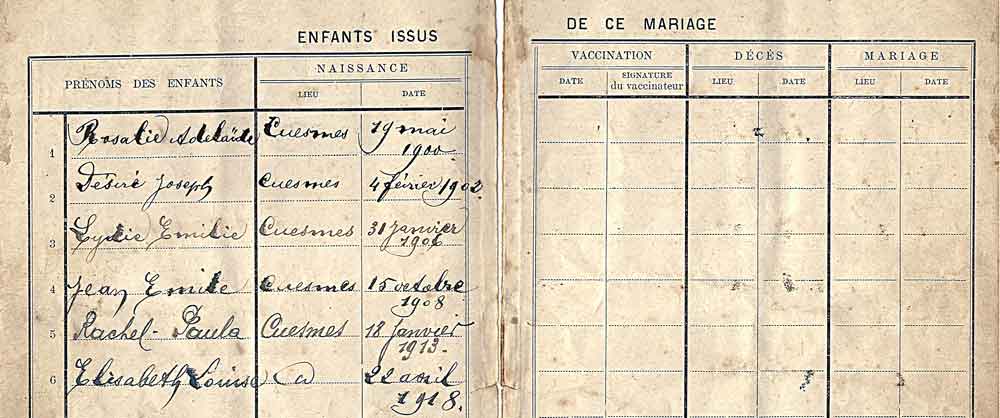 ENFANTS ISSUS DE CE MARIAGE
PRÉNOMS DES ENFANTS NAISSANCE VACCINATION DÉCÉS MARIAGE
LIEU DATE DATE SIGNATURE du vaccinateur LIEU DATE LIEU DATE
1 Rosalie Adelaïde Cuesmes 19 mai
1900
2 Désiré Joseph Cuesmes 4 février 1902
3 Lydie Emilie Cuesmes 31 janvier
1906
4 Jean Emile Cuesmes 15 octobre
1908
5 Rachel-Paula Cuesmes 18 Janvier
1913.
6 Elisabeth Louise 22 avril
1918.